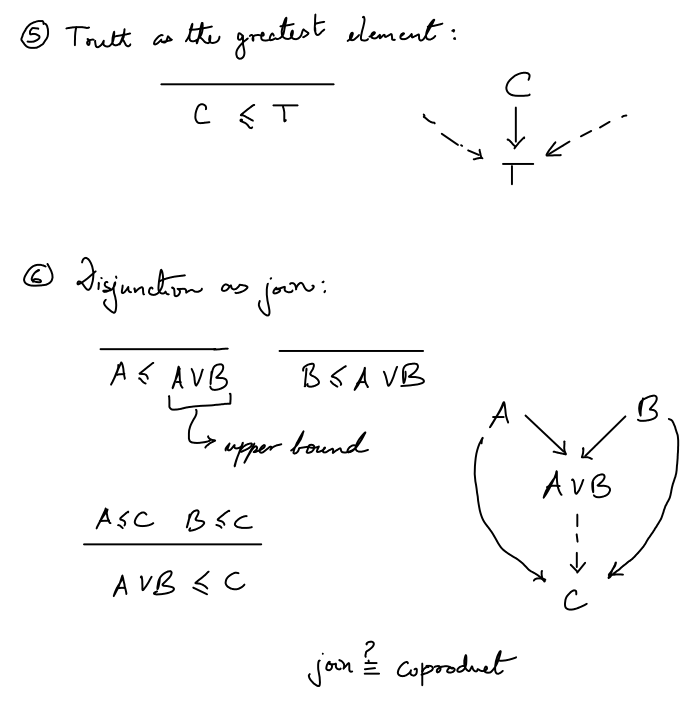 ⑤ Truth as the greatest element:
C ≤ T
C
T
⑥ Disjunction as join:
A ≤ A ∨ B
B ≤ A ∨ B
upper bound
A B
A ∨ B
C
A ≤ C B ≤ C
A ∨ B ≤ C
join ≟ coproduct